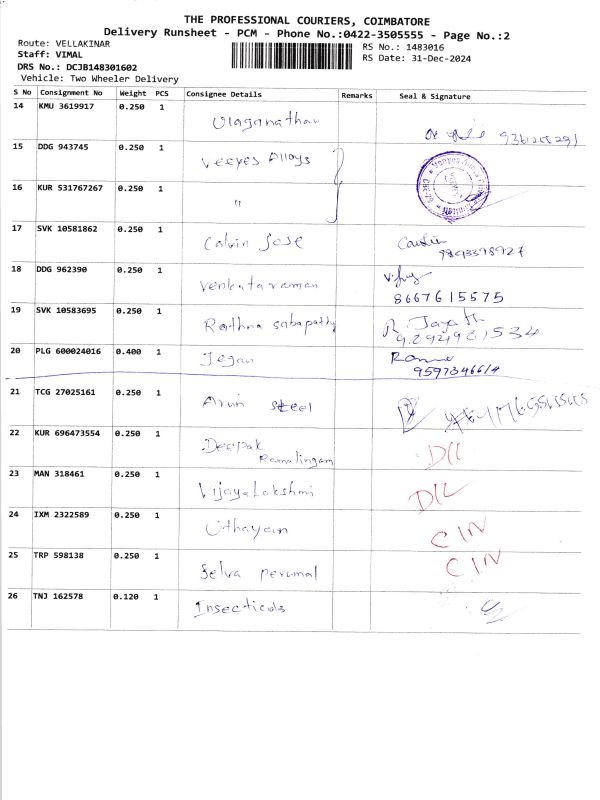 THE PROFESSIONAL COURIERS, COIMBATORE
Delivery Runsheet - PCM - Phone No.:0422-3505555 - Page No.:2
Route: VELLAKINAR
Staff: VIMAL
DRS No.: DCJB148301602
Vehicle: Two Wheeler Delivery
RS No.: 1483016
RS Date: 31-Dec-2024
S No Consignment No Weight PCS Consignee Details Remarks Seal & Signature
14 KMU 3619917 0.250 1 Ulaganathan
15 DDG 943745 0.250 1 Veeyes Alloys
16 KUR 531767267 0.250 1 "
17 SVK 10581862 0.250 1 Calvin Jose
9893398927
18 DDG 962390 0.250 1 Venkataraman
8667615575
19 SVK 10583695 0.250 1 Rathna sabapathy R. Jayath
9292921534
20 PLG 600024016 0.400 1 Jegan
9597346614
21 TCG 27025161 0.250 1 Arun steel
22 KUR 696473554 0.250 1 Deepak
Ramalingam D/L
23 MAN 318461 0.250 1 Vijayalakshmi D/L
24 IXM 2322589 0.250 1 Uthayam C/N
25 TRP 598138 0.250 1 Selva perumal C/N
26 TNJ 162578 0.120 1 Insecticids